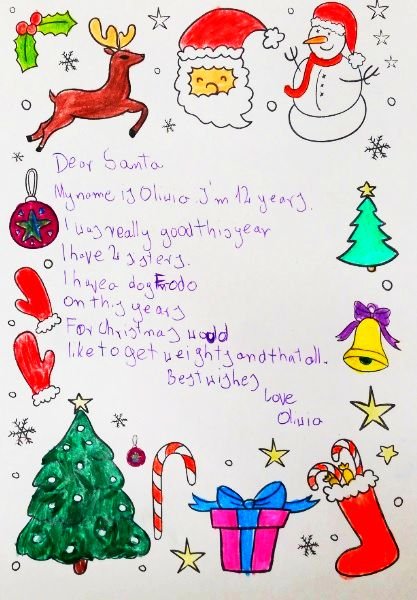 Dear Santa
My name is Olivia. I'm 12 years.
I was really good this year
I have 2 sisters.
I have a dog Frodo
on this years
For Christmas would
like to get weights and that all.
Best wishes
Love
Olivia